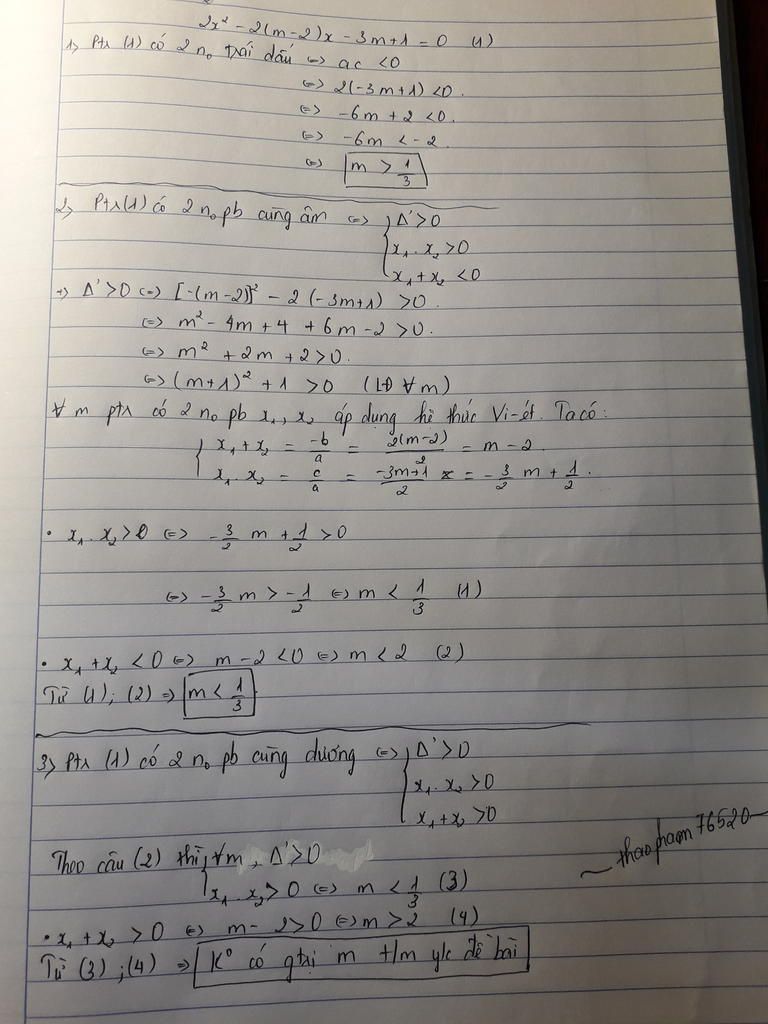 2x² - 2(m-2)x - 3m+1 = 0 (1)
1, Ptr (1) có 2 nₒ trái dấu <=> ac < 0
<=> 2(-3m+1) < 0.
<=> -6m + 2 < 0.
<=> -6m < -2
<=> m > 1/3
2, Ptr (1) có 2 nₒ pb cùng âm <=> { Δ' > 0
x₁. x₂ > 0
x₁ + x₂ < 0
+) Δ' > 0 <=> [-(m-2)]² - 2(-3m+1) > 0.
<=> m² - 4m + 4 + 6m - 2 > 0.
<=> m² + 2m + 2 > 0.
<=> (m+1)² + 1 > 0 (LĐ ∀m)
∀ m ptr có 2 nₒ pb x₁, x₂ áp dụng hệ thức Vi-ét. Ta có:
{ x₁ + x₂ = -b/a = 2(m-2)/2 = m - 2
x₁. x₂ = c/a = -3m+1/2 = -3/2 m + 1/2.
• x₁. x₂ > 0 <=> -3/2 m + 1/2 > 0
<=> -3/2 m > -1/2 <=> m < 1/3 (1)
• x₁ + x₂ < 0 <=> m - 2 < 0 <=> m < 2 (2)
Từ (1); (2) => m < 1/3
3, Ptr (1) có 2 nₒ pb cùng dương <=> { Δ' > 0
x₁. x₂ > 0
x₁ + x₂ > 0
Theo câu (2) thì { ∀m, Δ' > 0
x₁. x₂ > 0 <=> m < 1/3 (3)
• x₁ + x₂ > 0 <=> m - 2 > 0 <=> m > 2 (4)
Từ (3); (4) => K° có gtrị m t/m y/c đề bài
thaopham76520